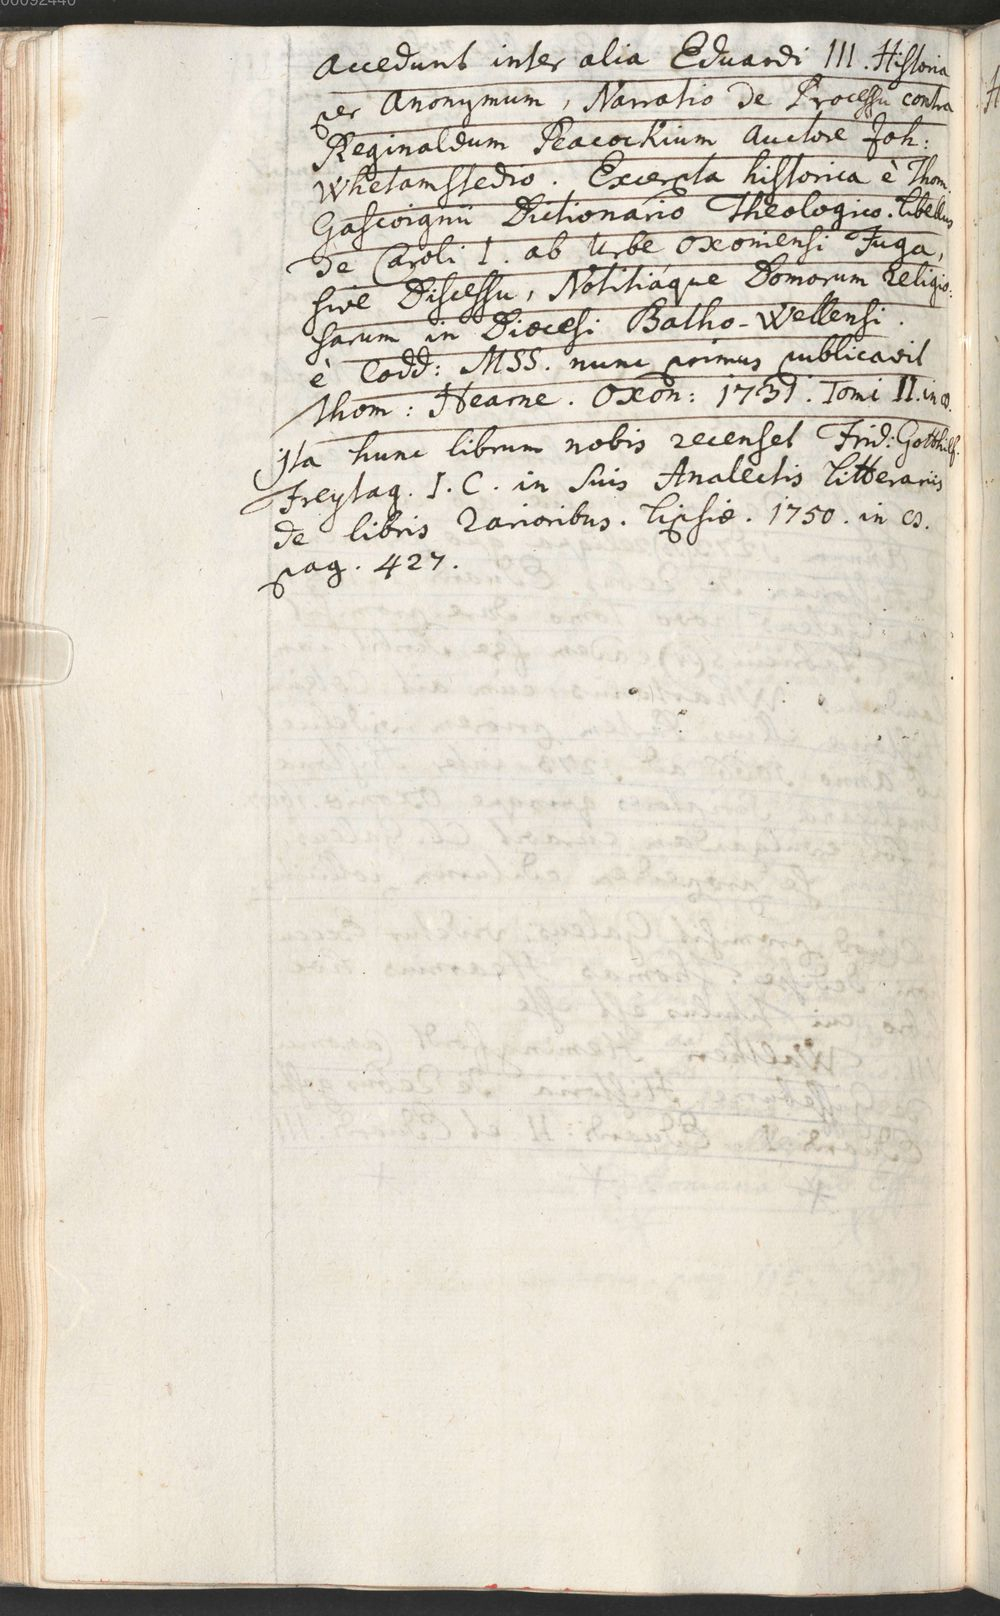 Accedunt inter alia Eduardi III. Historia
per Anonymum, Narratio de Processu contra
Reginaldum Peacockium Auctore Joh:
Whetamstedio. Excerpta historica è Thom.
Gascoignii Dictionario Theologico. Libellus
de Caroli I. ab Urbe Oxoniensi Fuga,
sive Discessu, Notitiáque Domorum Religio:
sarum in Dioecesi Batho-Wellensi.
è Codd: MSS. nunc primus publicavit
Thom: Hearne. Oxon: 1731. Tomi II. in 8.
Ita hunc librum nobis recenset Frid: Gotthilf.
Freytag. I. C. in suis Analectis Litterariis
de libris rarioribus. Lipsiæ. 1750. in 8.
pag. 427.